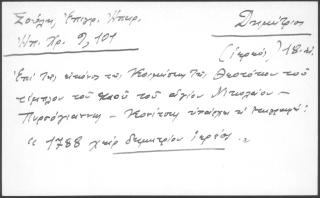 Σούλη, Ἐπιγρ. Ἠπειρ.
Ἠπ. Χρ. 9, 101
Δημήτριος
(ἱερεύς) 18. αἰ.
Ἐπὶ τῆς εἰκόνος τῆς Κοιμήσεως τῆς Θεοτόκου τοῦ
τέμπλου τοῦ ναοῦ τοῦ ἁγίου Νικολάου –
Πυρσόγιαννης – Κονίτσης ὑπάρχει ἡ ἐπιγραφή:
"1788 χείρ δημητρίου ἱερέος."